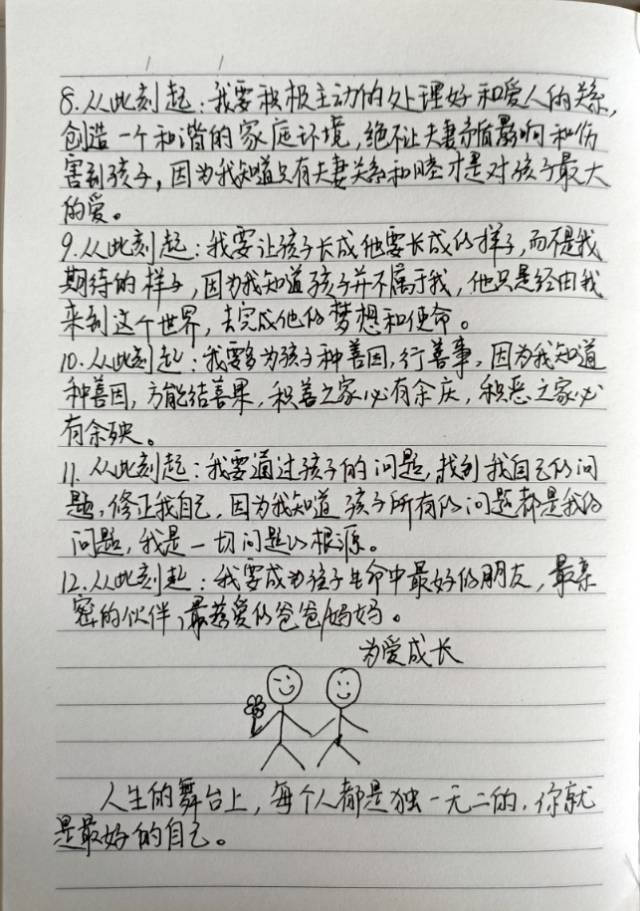 8.从此刻起:我要积极主动的处理好和爱人的关系,
创造一个和谐的家庭环境,绝不让夫妻矛盾影响和伤
害到孩子,因为我知道只有夫妻关系和睦才是对孩子最大
的爱。
9.从此刻起:我要让孩子长成他要长成的样子,而不是我
期待的样子,因为我知道孩子并不属于我,他只是经由我
来到这个世界,去完成他的梦想和使命。
10.从此刻起:我要多为孩子种善因,行善事,因为我知道
种善因,方能结善果,积善之家必有余庆,积恶之家必
有余殃。
11.从此刻起:我要通过孩子的问题,找到我自己的问
题,修正我自己,因为我知道孩子所有的问题都是我的
问题,我是一切问题的根源。
12.从此刻起:我要成为孩子生命中最好的朋友,最亲
密的伙伴,最慈爱的爸爸/妈妈。
为爱成长
人生的舞台上,每个人都是独一无二的.你就
是最好的自己。